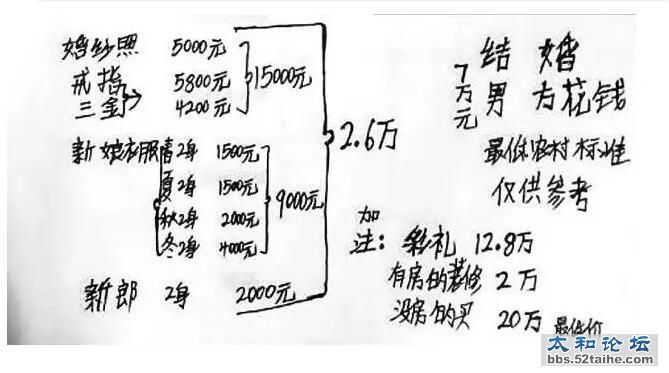 婚纱照 5000元
戒指 5800元
三金 4200元
15000元
新娘衣服 春2身 1500元
夏2身 1500元
秋2身 2000元
冬2身 4000元
9000元
新郎 2身 2000元
2.6万
7万元
结婚
男方花钱
最低农村标准
仅供参考
加
注: 彩礼 12.8万
有房的装修 2万
没房的买 20万 最低价
太和论坛
bbs.52taihe.com